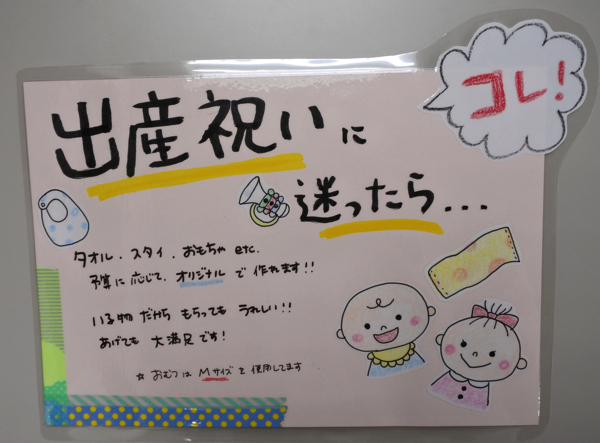 コレ!
出産祝いに
迷ったら...
タオル.スタイ.おもちゃ etc.
予算に応じて、オリジナルで作れます!!
いる物だからもらってもうれしい!!
あげても大満足です!
☆おむつはMサイズを使用してます